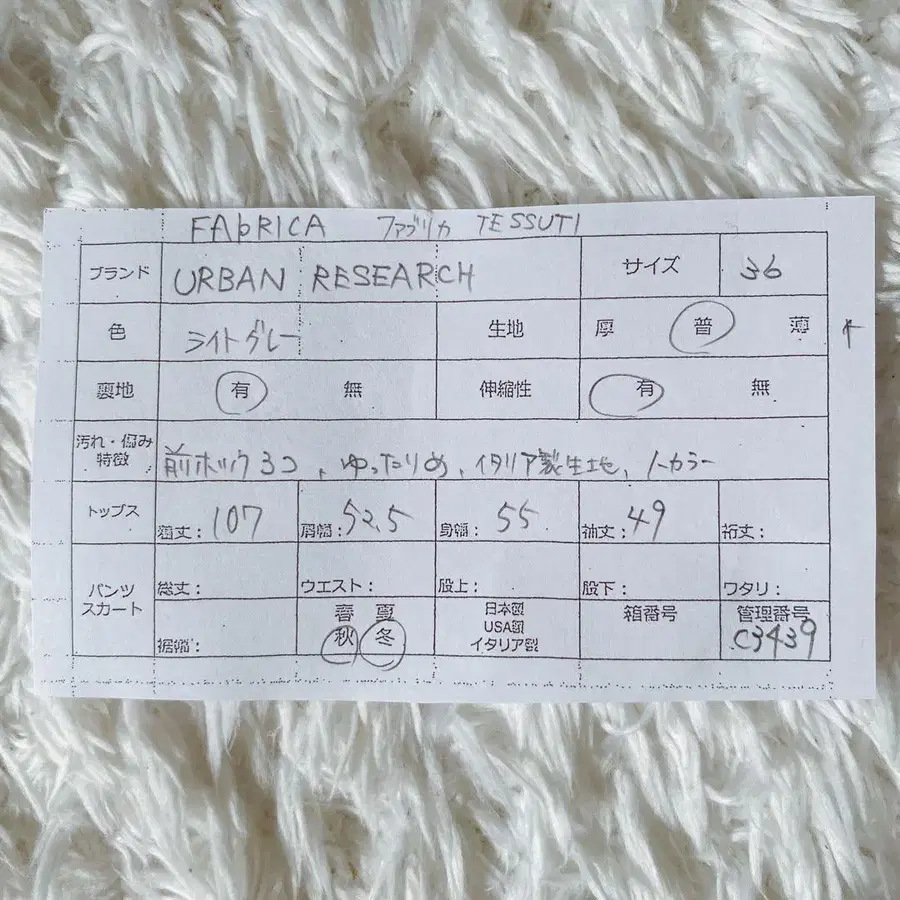 FAbRICA ファブリカ TESSUTI
ブランド URBAN RESEARCH サイズ 36
色 ライトグレー 生地 厚 普 薄
裏地 有 無 伸縮性 有 無
汚れ・傷み
特徴 前ホック3コ、ゆったりめ、イタリア製生地、ノーカラー
トップス 着丈:107 肩幅:52.5 身幅:55 袖丈:49 裄丈:
パンツ
スカート 総丈: ウエスト: 股上: 股下: ワタリ:
裾幅: 春 夏 秋 冬 日本製 USA製 イタリア製 箱番号 管理番号 C3439